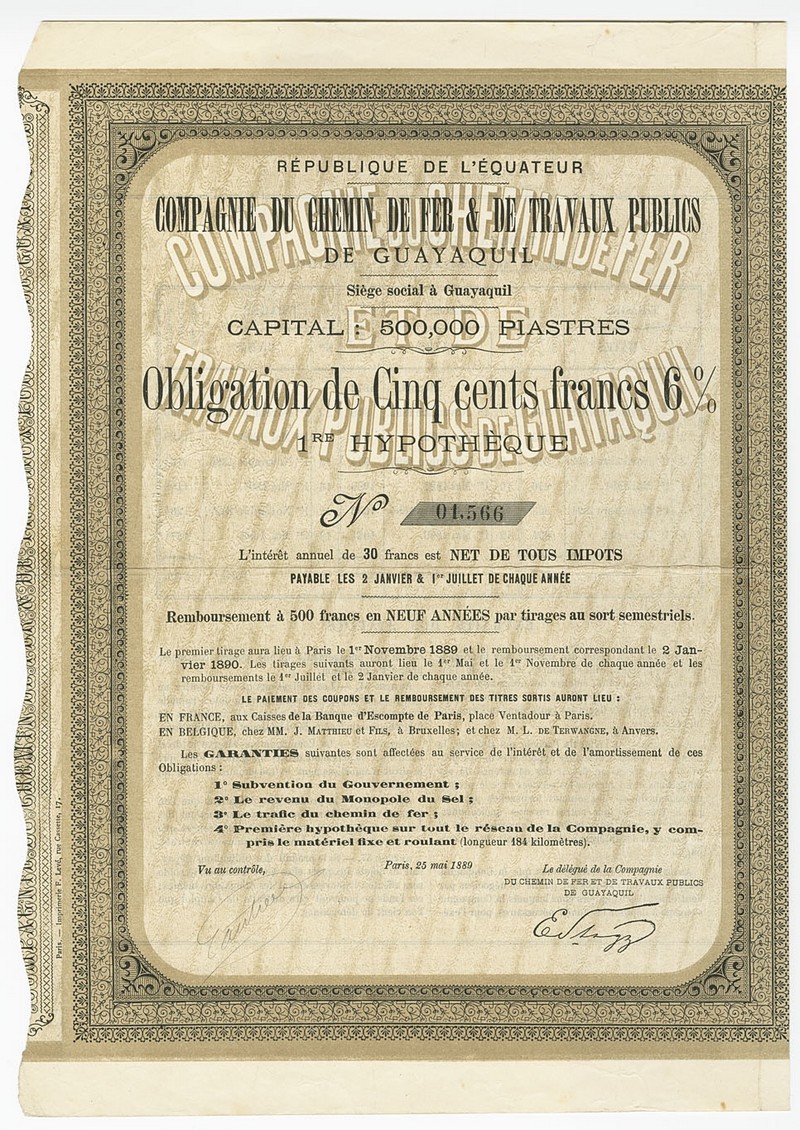 RÉPUBLIQUE DE L'ÉQUATEUR
COMPAGNIE DU CHEMIN DE FER & DE TRAVAUX PUBLICS
DE GUAYAQUIL
COMPAGNIE DU CHEMIN DE FER
ET DE
TRAVAUX PUBLICS DE GUAYAQUIL
Siège social à Guayaquil
CAPITAL : 500,000 PIASTRES
Obligation de Cinq cents francs 6 %
1RE HYPOTHÈQUE
No 01,566
L'intérêt annuel de 30 francs est NET DE TOUS IMPOTS
PAYABLE LES 2 JANVIER & 1er JUILLET DE CHAQUE ANNÉE
Remboursement à 500 francs en NEUF ANNÉES par tirages au sort semestriels.
Le premier tirage aura lieu à Paris le 1er Novembre 1889 et le remboursement correspondant le 2 Jan-
vier 1890. Les tirages suivants auront lieu le 1er Mai et le 1er Novembre de chaque année et les
remboursements le 1er Juillet et le 2 Janvier de chaque année.
LE PAIEMENT DES COUPONS ET LE REMBOURSEMENT DES TITRES SORTIS AURONT LIEU :
EN FRANCE, aux Caisses de la Banque d'Escompte de Paris, place Ventadour à Paris.
EN BELGIQUE, chez MM. J. MATTHIEU et FILS, à Bruxelles; et chez M. L. DE TERWANGNE, à Anvers.
Les GARANTIES suivantes sont affectées au service de l'intérêt et de l'amortissement de ces
Obligations :
1° Subvention du Gouvernement ;
2° Le revenu du Monopole du Sel ;
3° Le trafic du chemin de fer ;
4° Première hypothèque sur tout le réseau de la Compagnie, y com-
pris le matériel fixe et roulant (longueur 184 kilomètres).
Vu au contrôle,
Paris, 25 mai 1889
Le délégué de la Compagnie
DU CHEMIN DE FER ET DE TRAVAUX PUBLICS
DE GUAYAQUIL
Paris. — Imprimerie F. Levé, rue Cassette, 17.